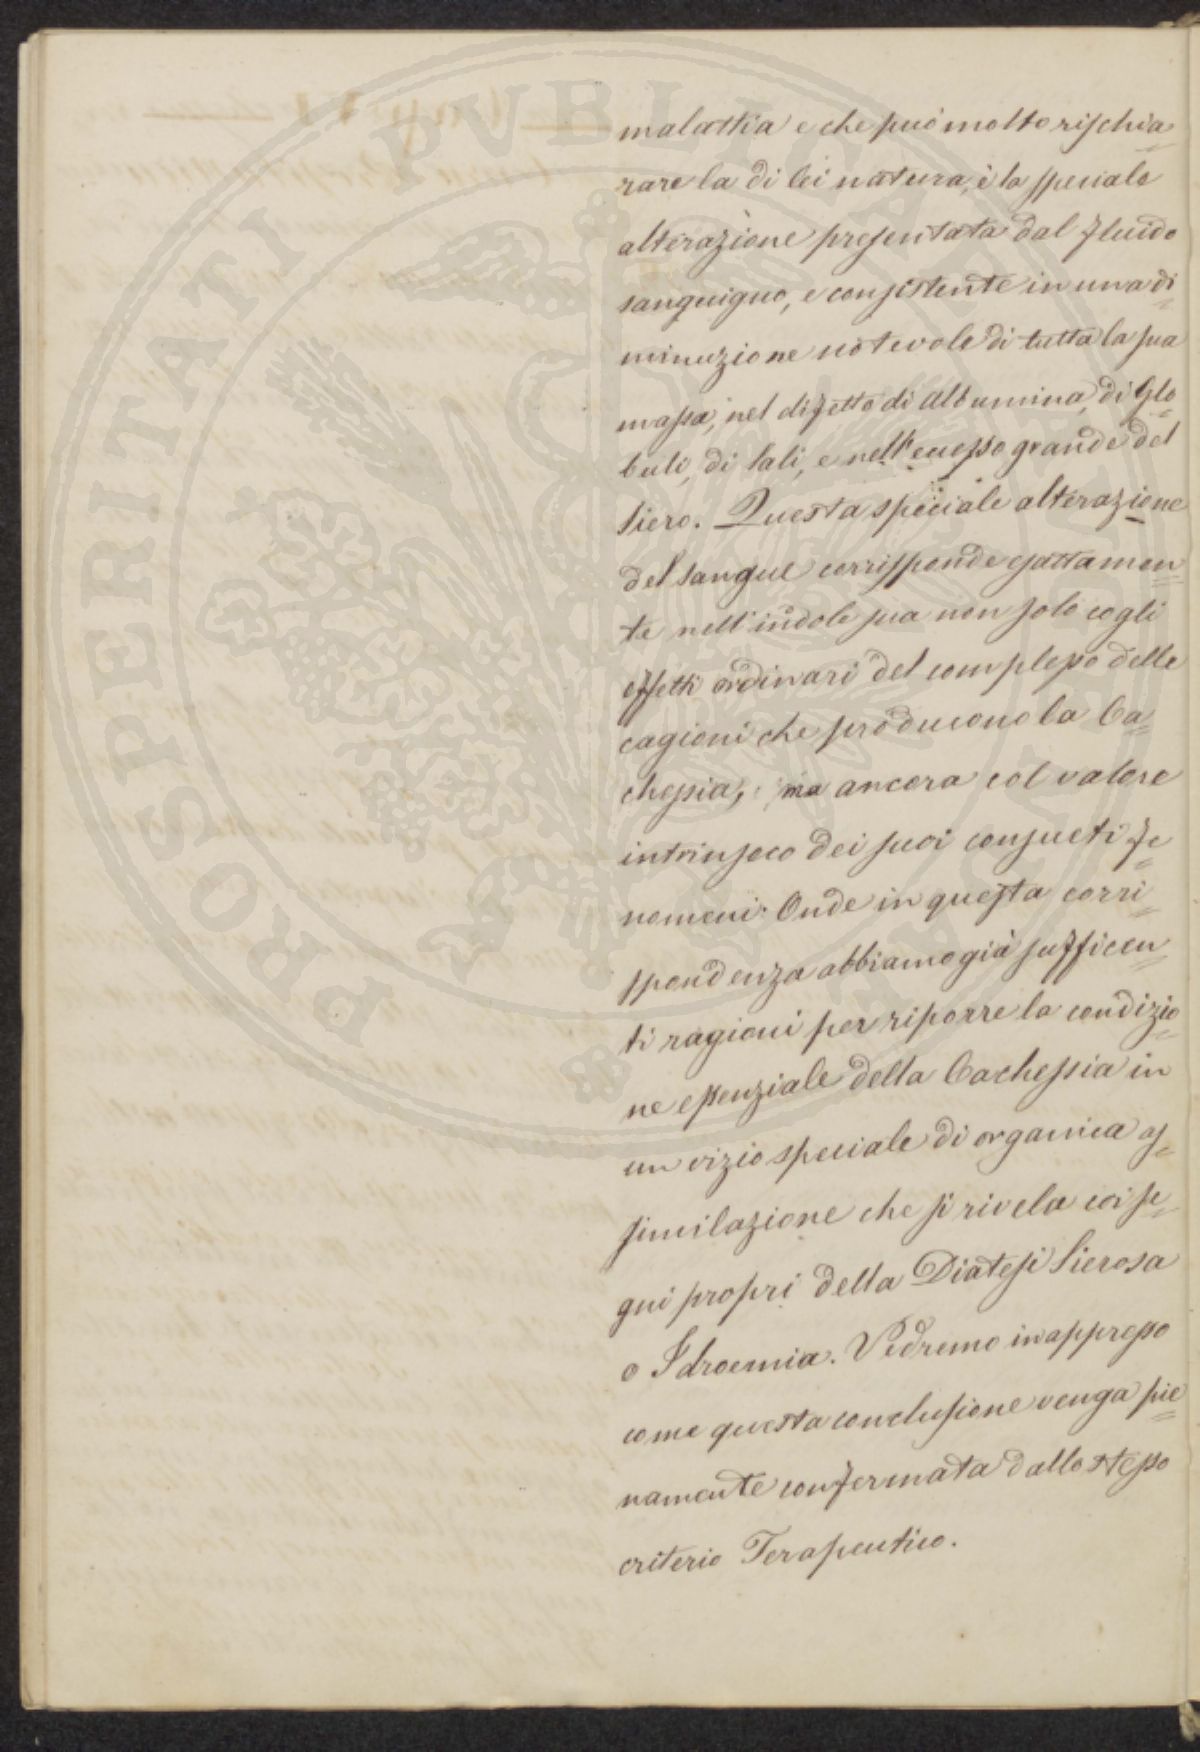 malattia e che può molto rischia=
rare la di lei natura, è la speciale
alterazione presentata dal fluido
sanguigno, e consistente in una di=
minuzione notevole di tutta la sua
massa, nel difetto di albumina, di glo=
buli, di sali, e nell'eccesso grande del
siero. Questa speciale alterazione
del sangue corrisponde esattamen=
te nell'indole sua non solo cogli
effetti ordinari del complesso delle
cagioni che producono la Ca=
chessia, ma ancora col valore
intrinseco dei suoi consueti fe=
nomeni. Onde in questa corri=
spondenza abbiamo già sufficen=
ti ragioni per riporre la condizio=
ne essenziale della Cachessia in
un vizio speciale di organica as=
similazione che si rivela coi se=
gni propri della Diatesi Sierosa
o Idroemia. Vedremo in appresso
come questa conclusione venga pie=
namente confermata dallo stesso
criterio Terapeutico.
PROSPERITATI PVBLICAE